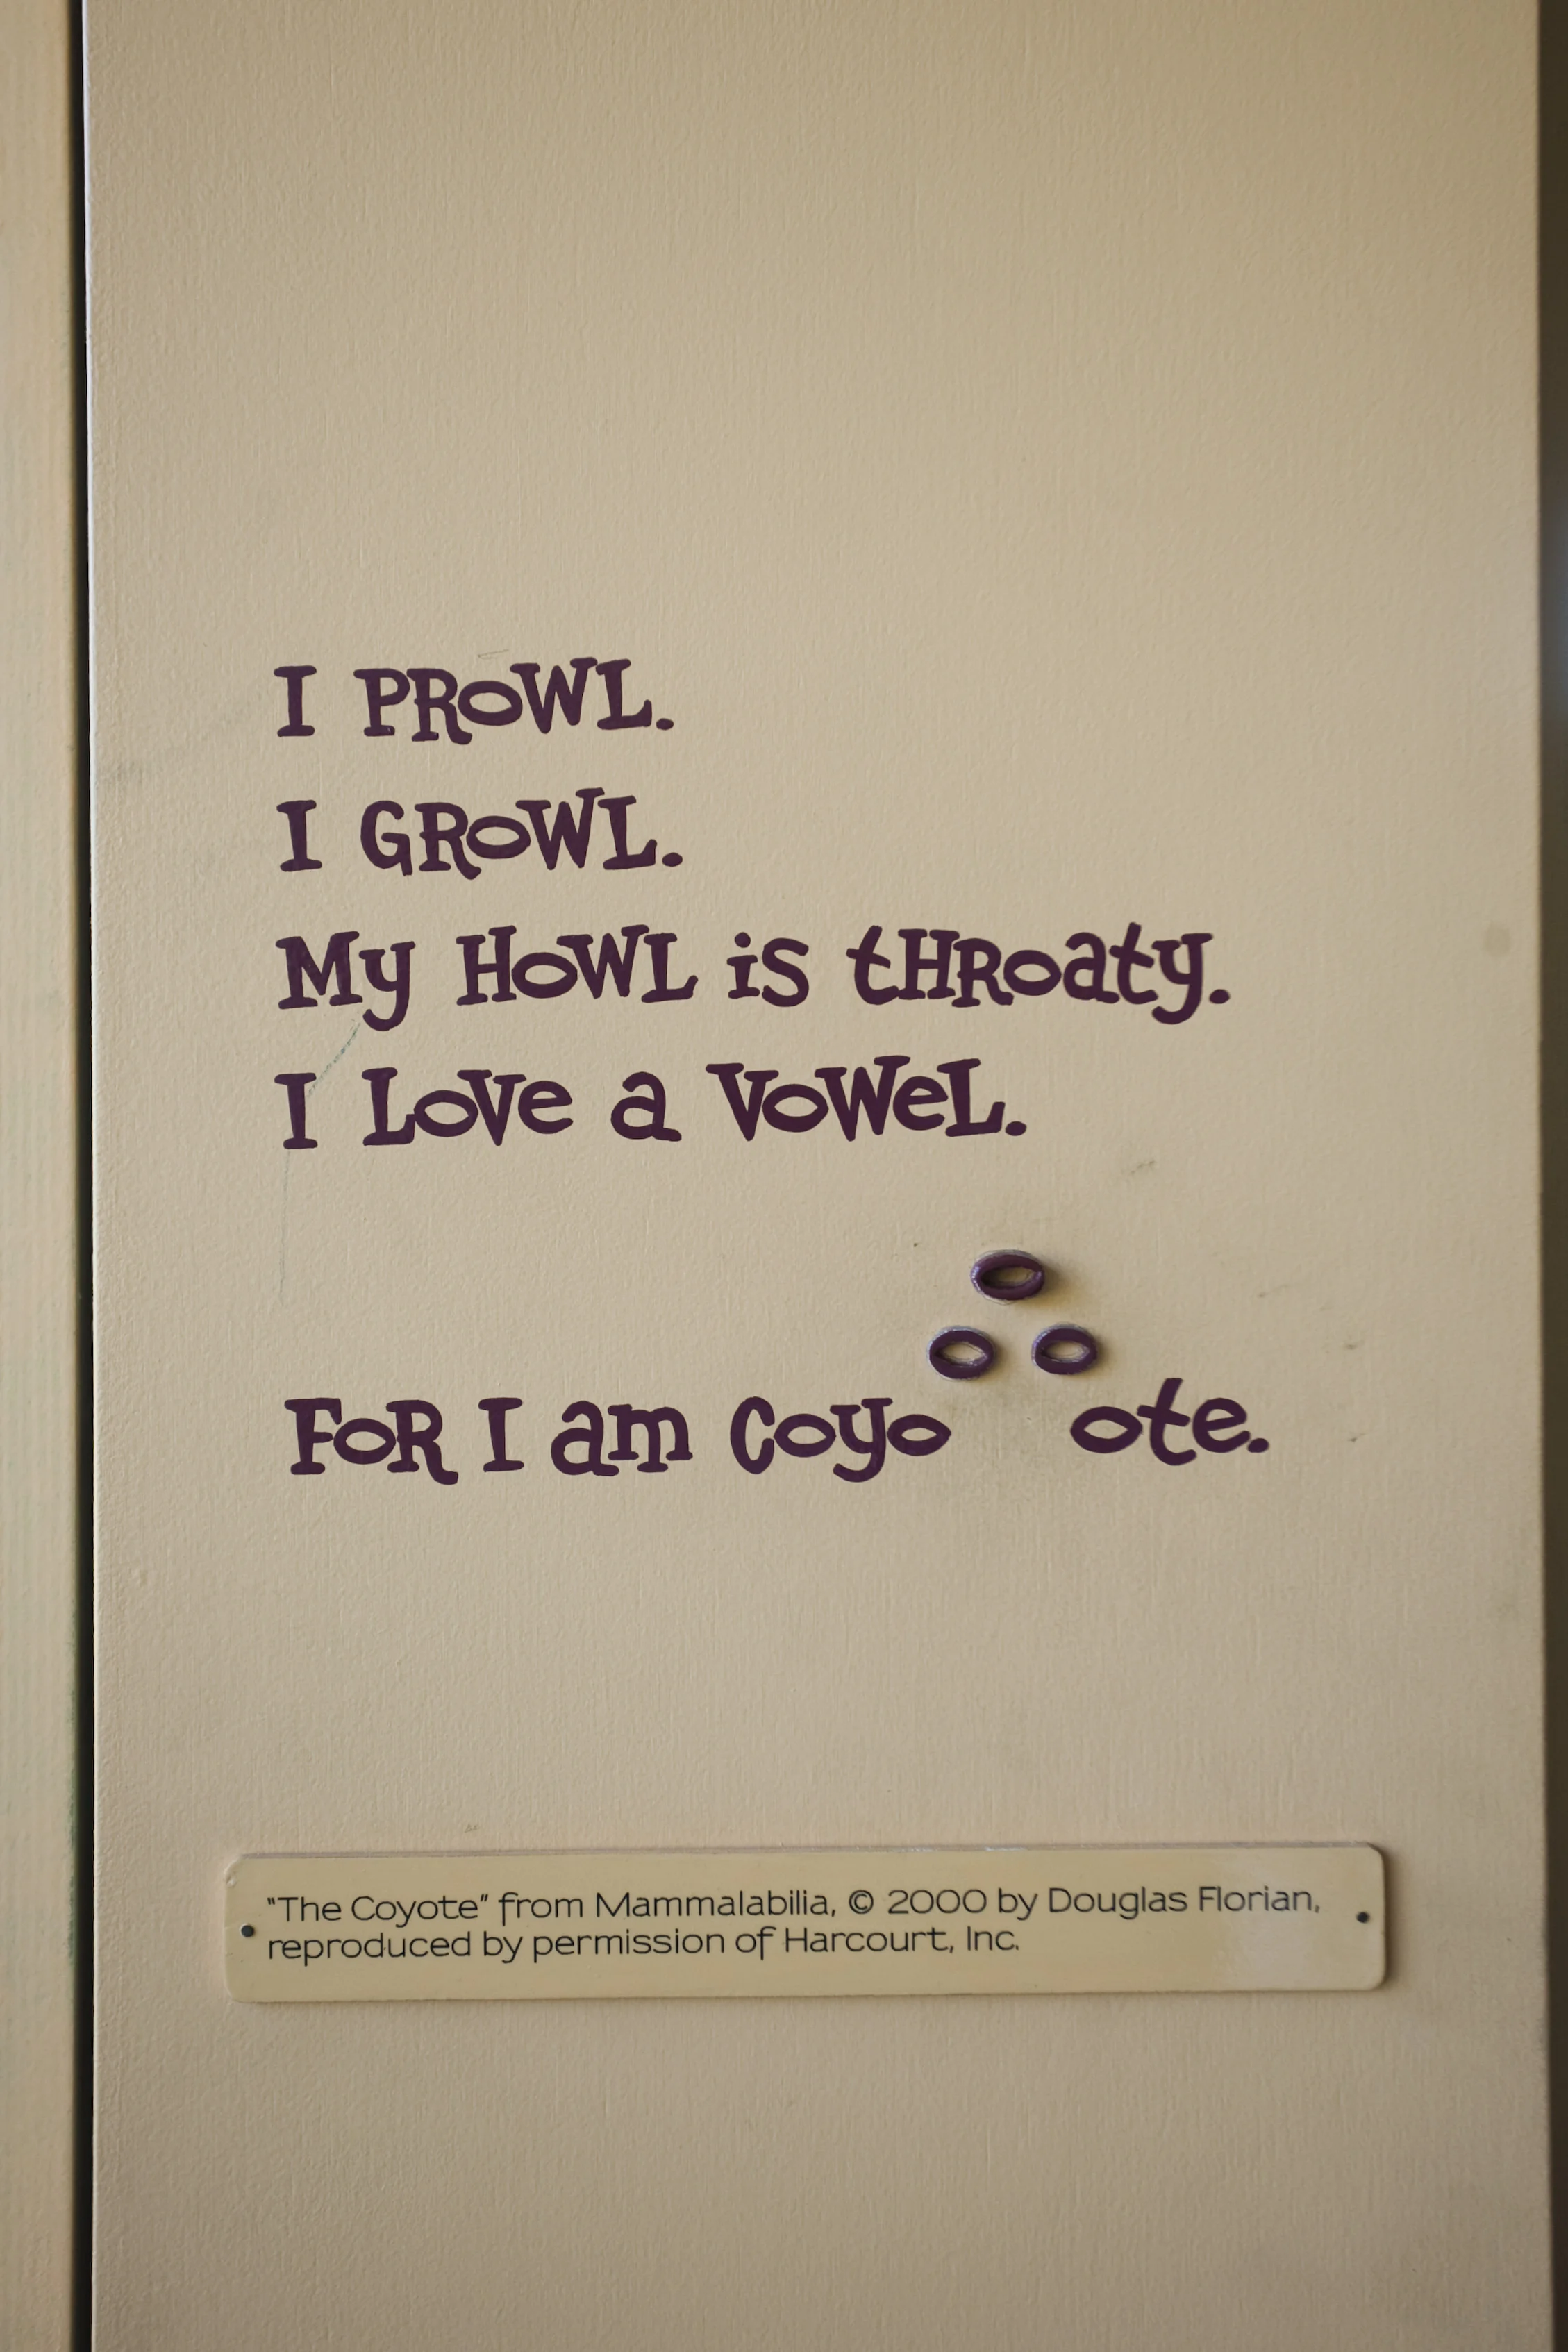 I PRoWL.
I GRoWL.
My HoWL is tHRoaty.
I LoVe a VoWeL.
o
o o
FoR I am Coyo ote.
"The Coyote" from Mammalabilia, © 2000 by Douglas Florian,
reproduced by permission of Harcourt, Inc.